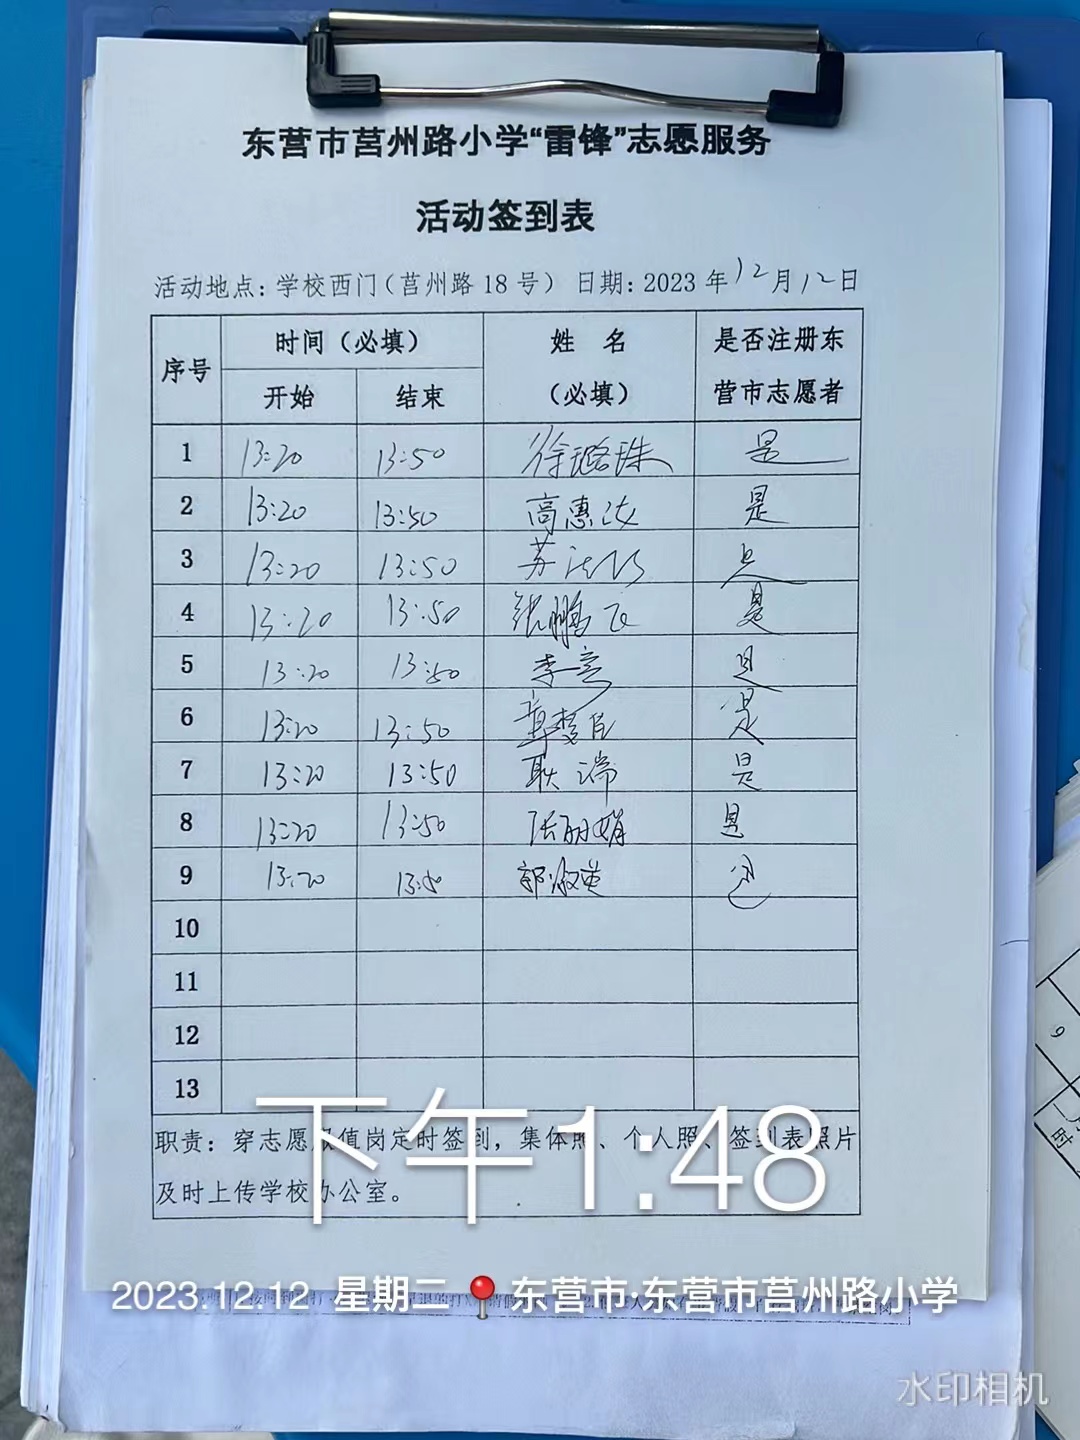 东营市莒州路小学“雷锋”志愿服务
活动签到表
活动地点：学校西门（莒州路 18 号） 日期：2023 年 12 月 12 日
序号 时间（必填） 姓 名 （必填） 是否注册东营市志愿者
开始 结束
1 13:20 13:50 徐璐珠 是
2 13:20 13:50 高惠汝 是
3 13:20 13:50 苏 是
4 13:20 13:50 张鹏飞 是
5 13:20 13:50 李 是
6 13:20 13:50 章 是
7 13:20 13:50 耿瑞 是
8 13:20 13:50 张丽娟 是
9 13:20 13:50 郭淑英 是
10
11
12
13
职责：穿志愿服值岗定时签到，集体照、个人照、签到表照片
及时上传学校办公室。
下午1:48
2023.12.12 星期二 东营市·东营市莒州路小学
水印相机
9
时